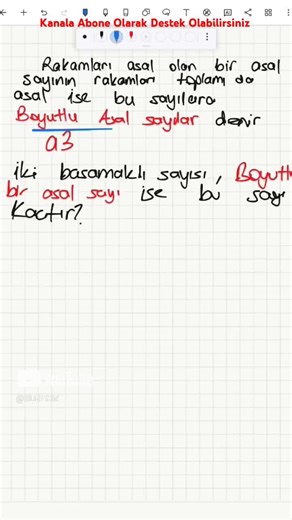 Kanala Abone Olarak Destek Olabilirsiniz
Rakamları asal olan bir asal
sayının rakamları toplamı da
asal ise bu sayılara
Boyutlu Asal sayılar denir
a3
iki basamaklı sayısı, Boyutlu
bir asal sayı ise bu sayı
Kaçtır?